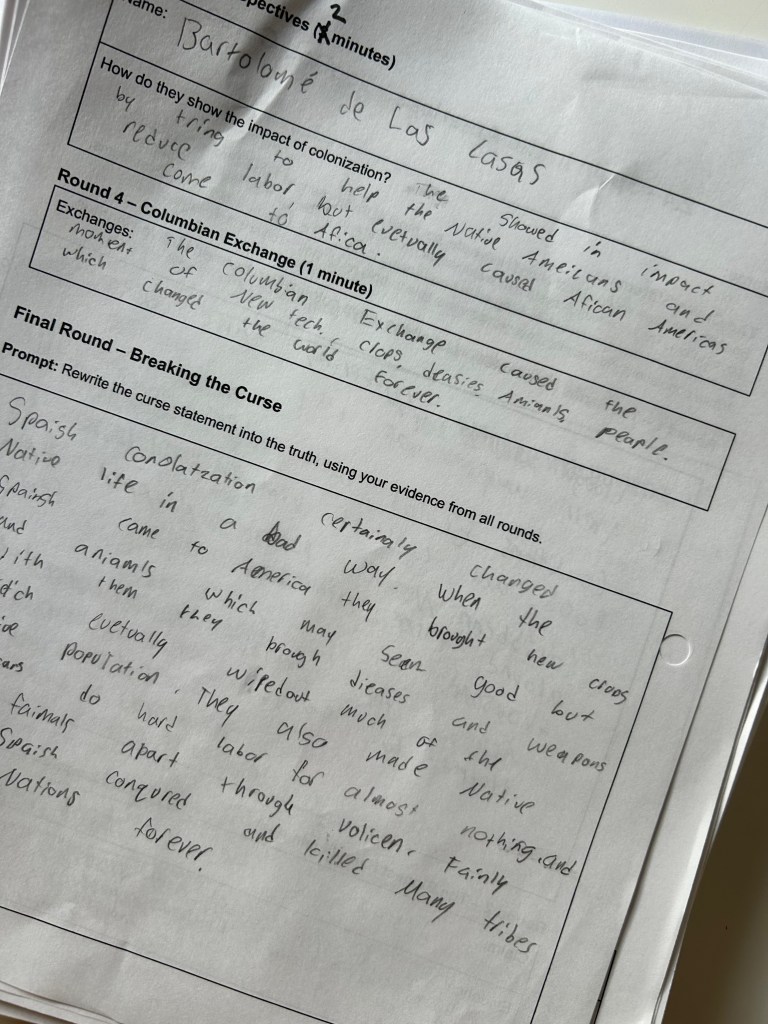 pectives (2 minutes)
Name: Bartolomé de Las Casas
How do they show the impact of colonization? The showed in impact
by tring to help the Native Ameicans and
reduce labor but evetually caused Afican Americas
come to Afica.
Round 4 – Columbian Exchange (1 minute)
Exchanges: The Columbian Exchange caused the
moment of New tech, clops, deasies, Amianls, people.
which changed the world forever.
Final Round – Breaking the Curse
Prompt: Rewrite the curse statement into the truth, using your evidence from all rounds.
Spaish conolatzation certainaly changed
Native life in a bad way. When the
Spainsh came to America they brought new crops
and aniamls which may seem good but
with them they brough dieases and weapons
evetually wipedout much of the
population. They also made Native
cans do hard labor for almost nothing, and
faimals apart through volicen. Fainly
Spaish conqured and killed Many tribes
Nations forever.